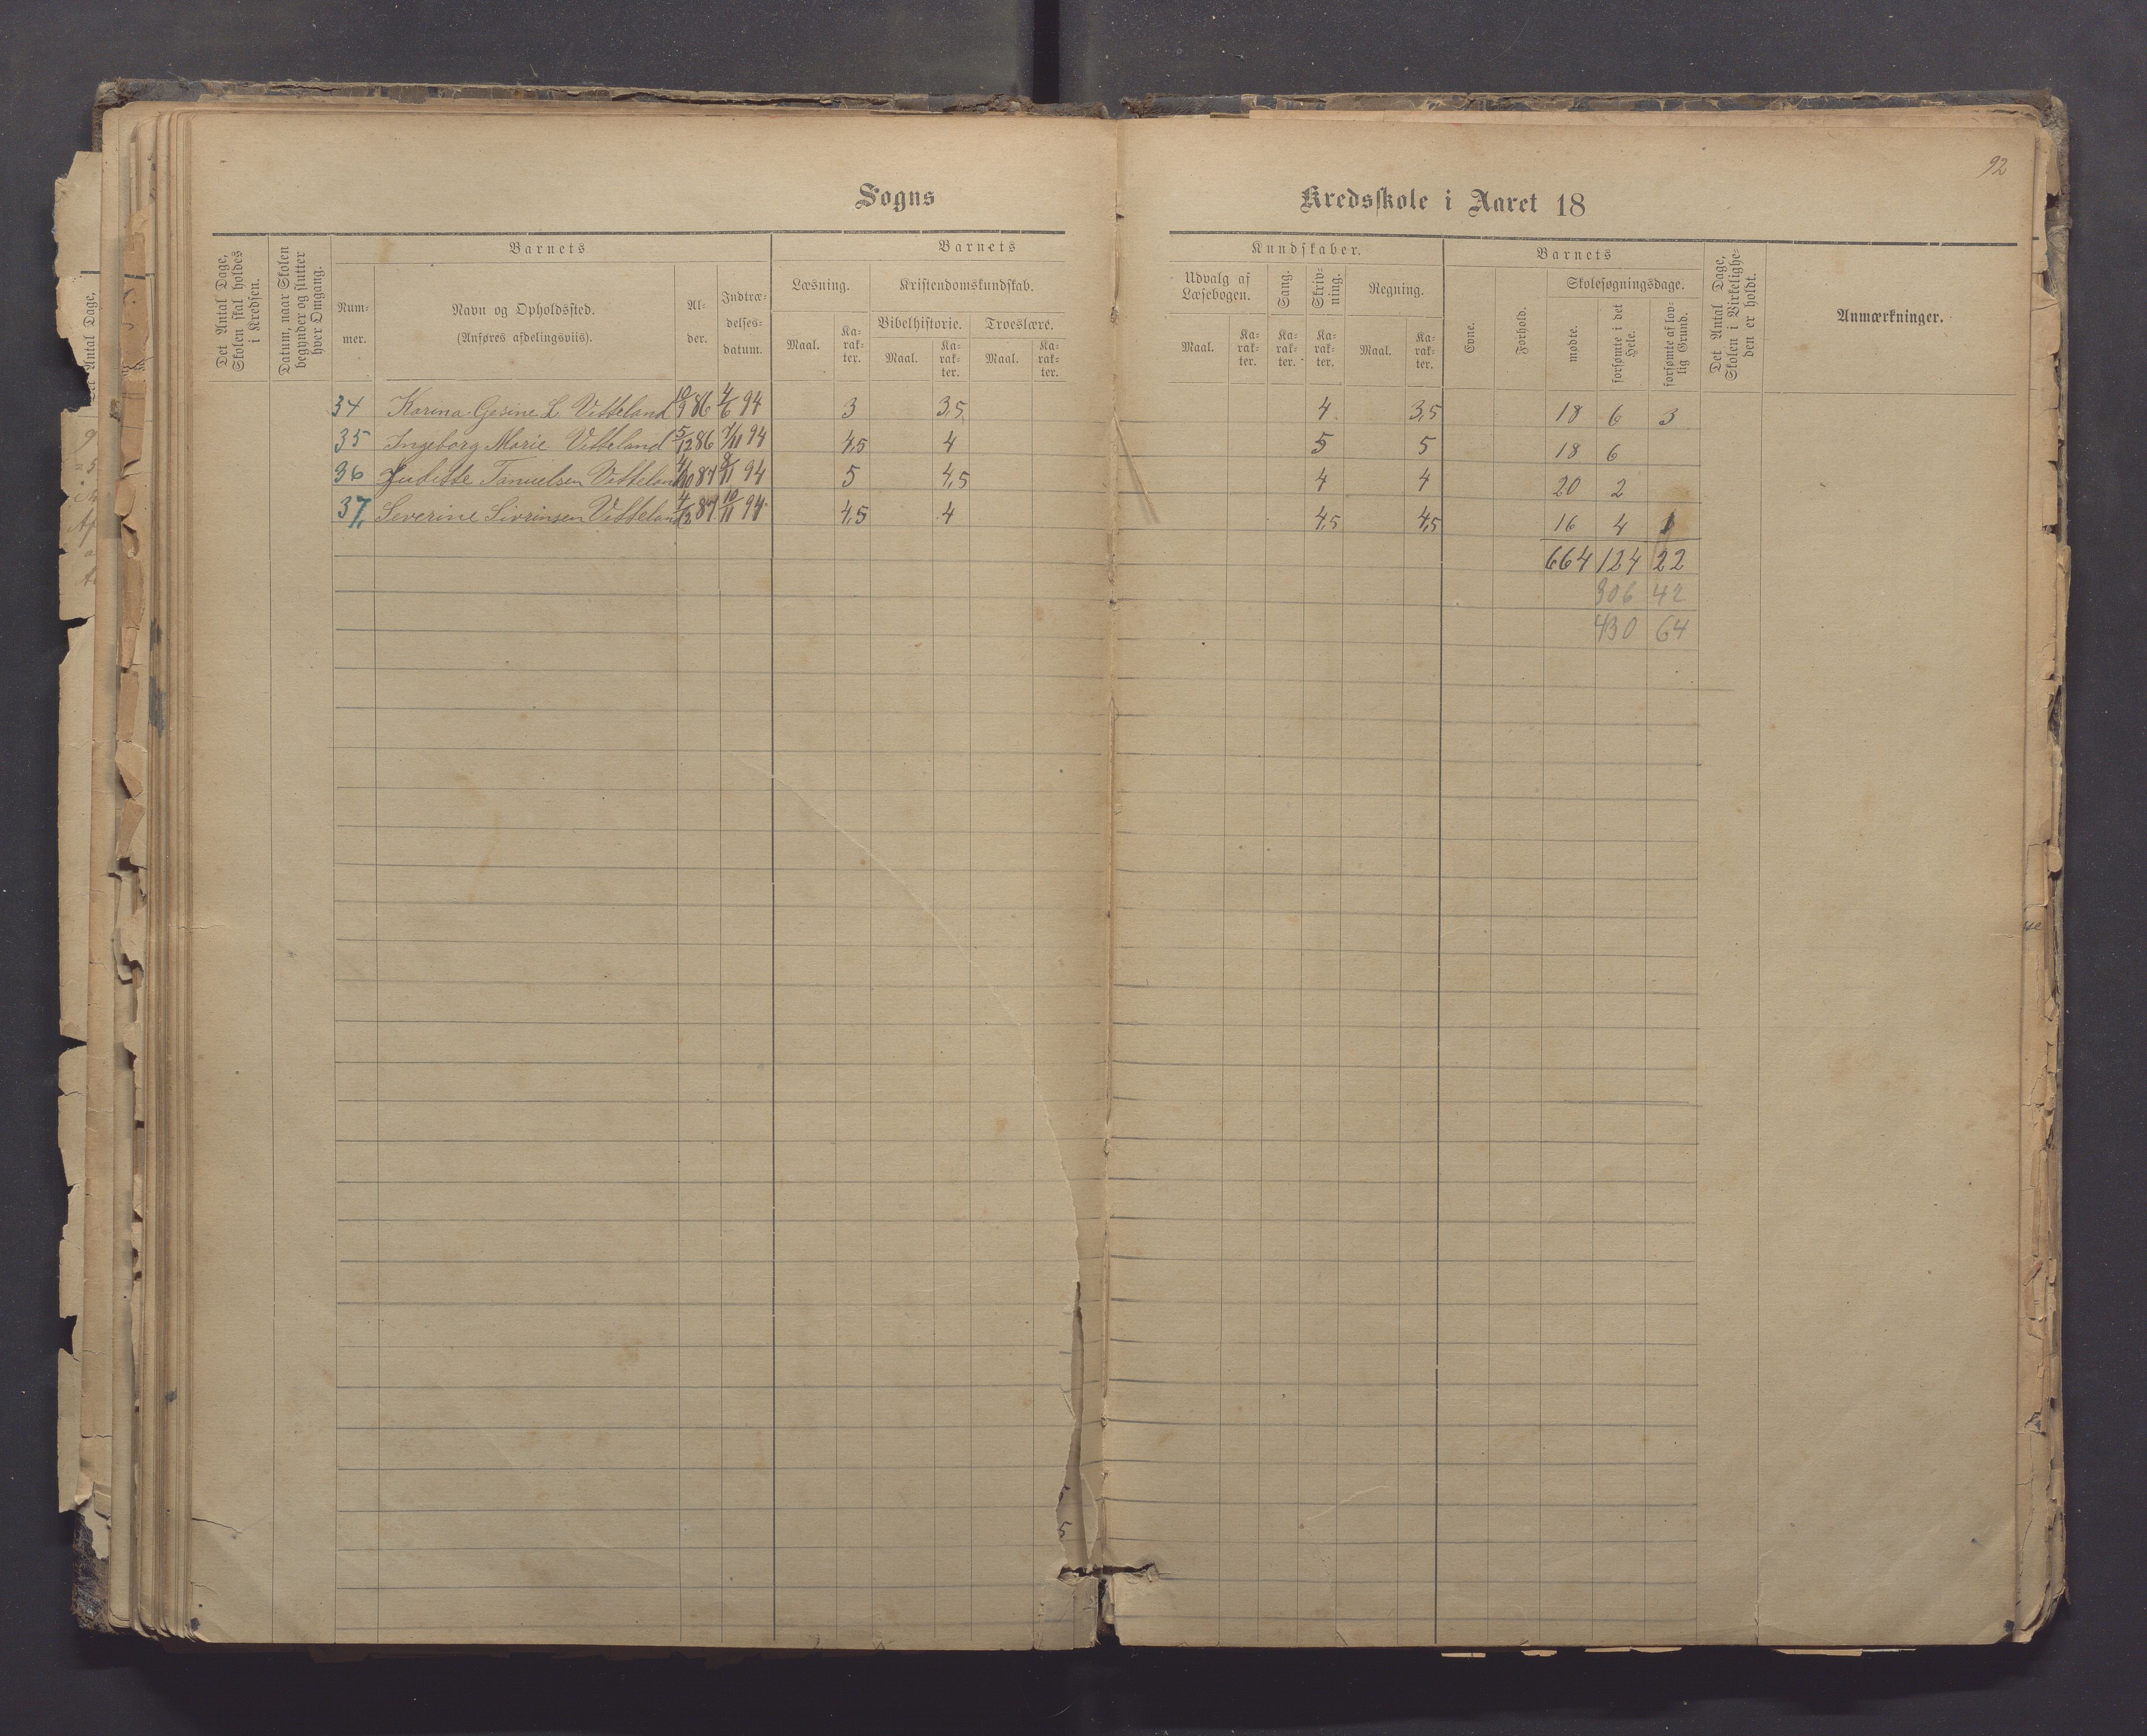 92
Sogns Kredsskole i Aaret 18
Det Antal Dage, Skolen skal holdes i Kredsen.
Datum, naar Skolen begynder og slutter hver Omgang.
Barnets
Num-mer.
Navn og Opholdssted.
(Anføres afdelingsviis).
Al-der.
Indtræ-delses-datum.
Barnets Kundskaber.
Læsning.
Maal.
Ka-rak-ter.
Kristendomskundskab.
Bibelhistorie.
Maal.
Ka-rak-ter.
Troeslære.
Maal.
Ka-rak-ter.
Udvalg af Læsebogen.
Maal.
Ka-rak-ter.
Sang.
Ka-rak-ter.
Skriv-ning.
Ka-rak-ter.
Regning.
Maal.
Ka-rak-ter.
Barnets
Evne.
Forhold.
Skolesøgningsdage.
mødte.
forsømte i det Hele.
forsømte af lov-lig Grund.
Det Antal Dage, Skolen i Virkelighe-den er holdt.
Anmærkninger.
34 Karina Gesine L Vetteland 10/9 86 4/6 94 3 3,5 4 3,5 18 6 3
35 Ingeborg Marie Vetteland 5/12 86 7/11 94 4,5 4 5 5 18 6
36 Juditte Tanuelsen Vetteland 4/10 87 8/11 94 5 4,5 4 4 20 2
37 Severine Sivrinsen Vetteland 4/12 87 10/11 94 4,5 4 4,5 4,5 16 4 1
664 124 22
306 42
430 64